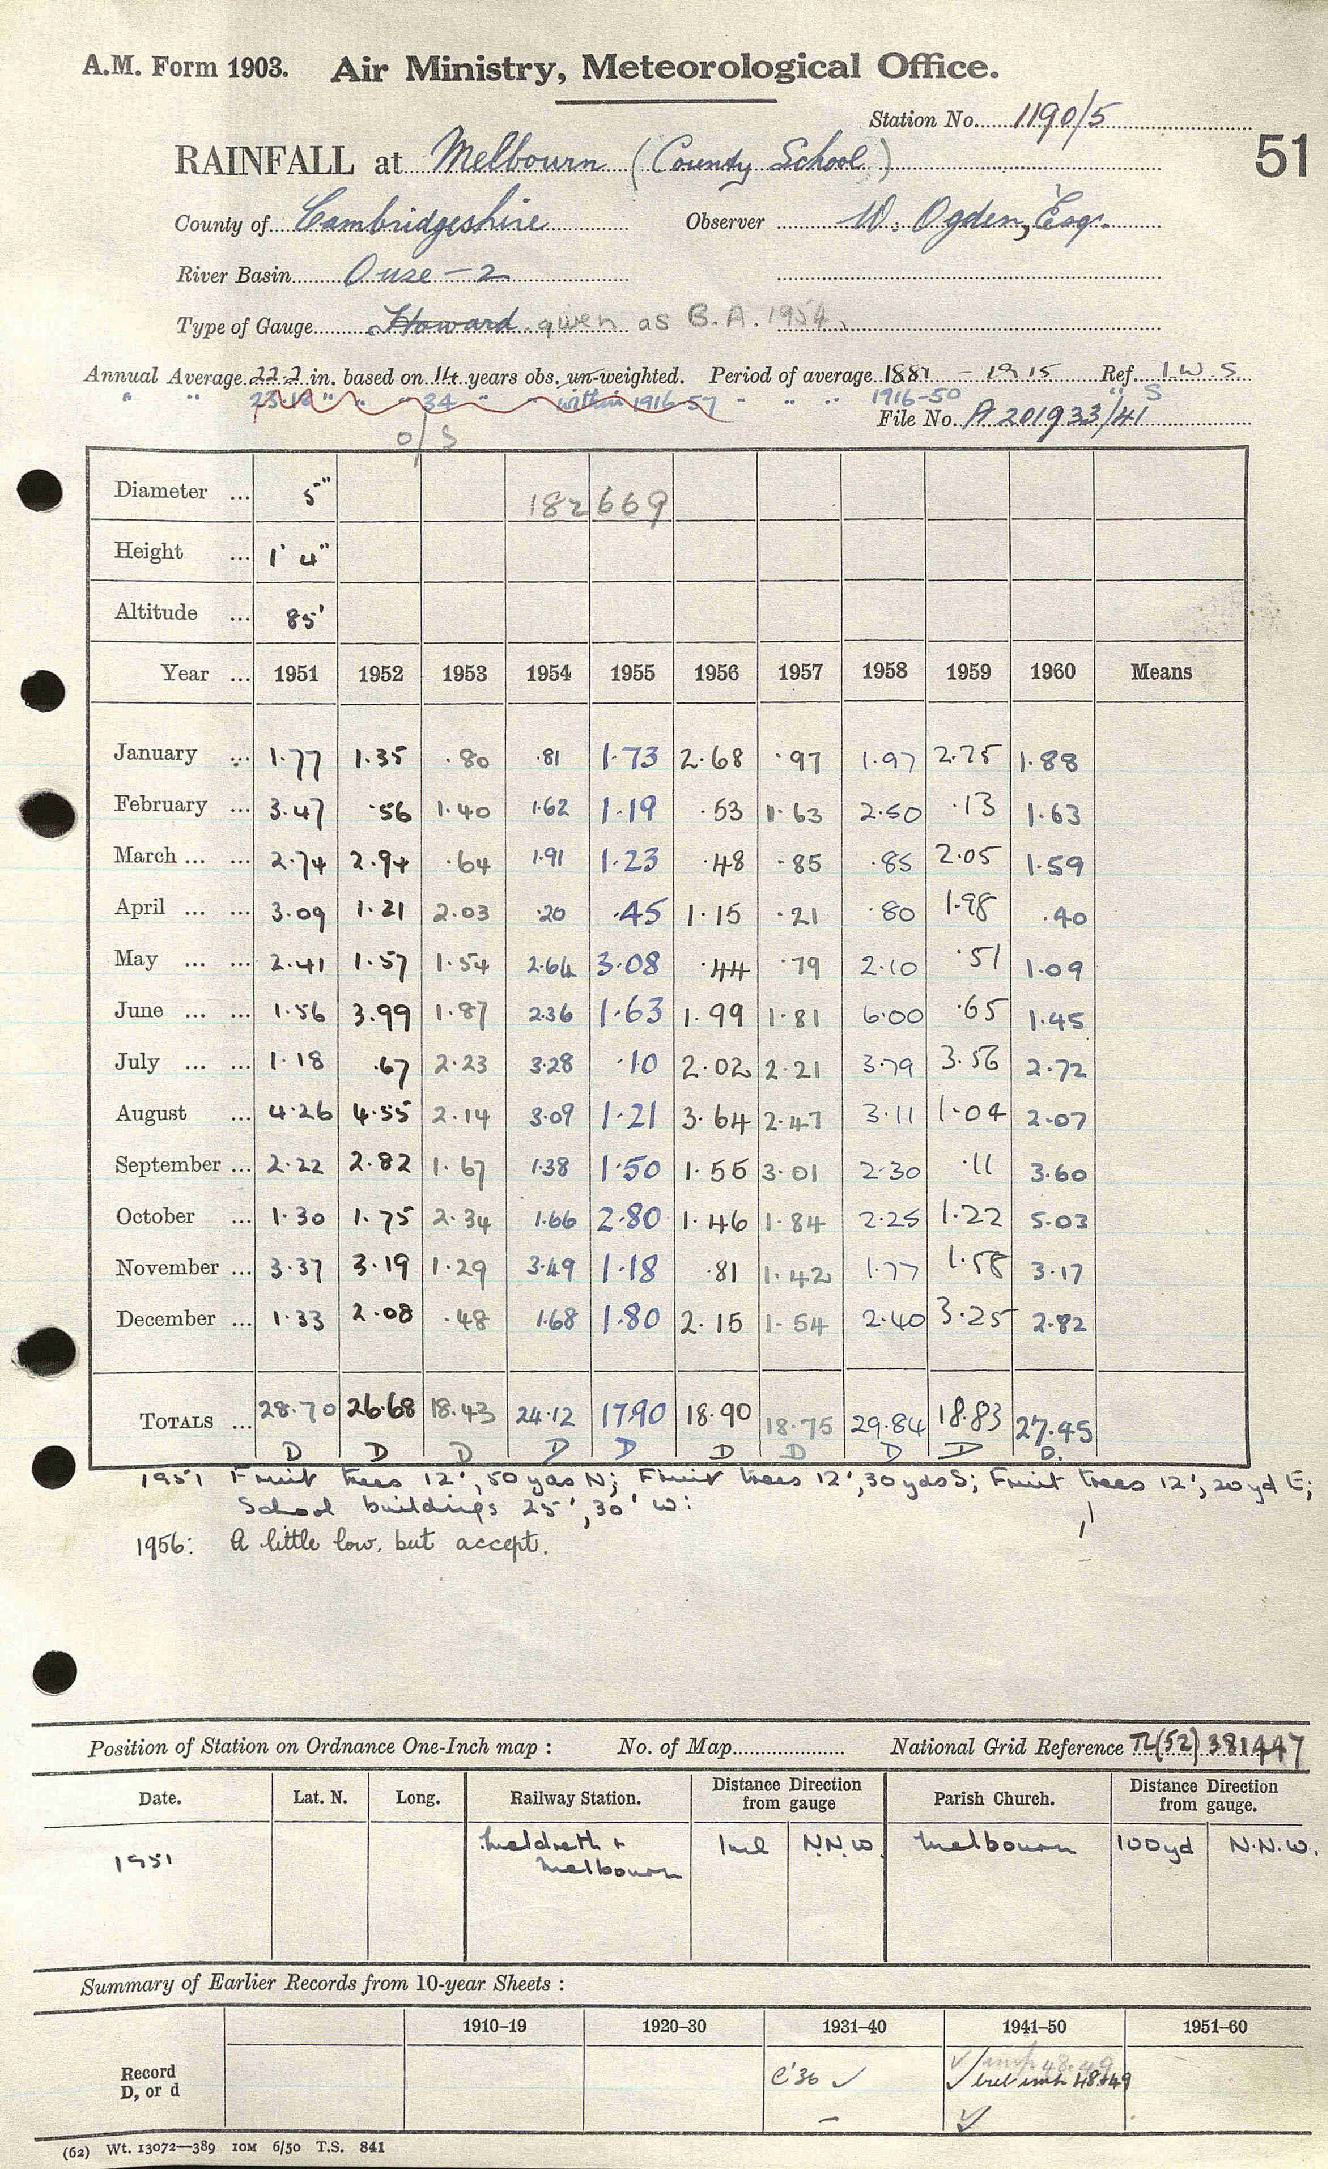 A.M. Form 1903. Air Ministry, Meteorological Office.
Station No. 1190/5
51
RAINFALL at Melbourn (County School)
County of Cambridgeshire Observer W. Ogden, Esq.
River Basin Ouse - 2
Type of Gauge Howard given as B.A. 1954.
Annual Average 22.2 in. based on 14 years obs. un-weighted. Period of average 1881 - 1915 Ref. I.W.S
" " 23.18 " " 34 " " within 1916-57 " " " 1916-50 " S
File No. A 201933/41
O/S
Diameter ... 5" 182669
Height ... 1' 4"
Altitude ... 85'
Year ... 1951 1952 1953 1954 1955 1956 1957 1958 1959 1960 Means
January ... 1.77 1.35 .80 .81 1.73 2.68 .97 1.97 2.75 1.88
February ... 3.47 .56 1.40 1.62 1.19 .53 1.63 2.50 .13 1.63
March ... ... 2.74 2.94 .64 1.91 1.23 .48 .85 .85 2.05 1.59
April ... ... 3.09 1.21 2.03 .20 .45 1.15 .21 .80 1.98 .40
May ... ... 2.41 1.57 1.54 2.64 3.08 .44 .79 2.10 .51 1.09
June ... ... 1.56 3.99 1.87 2.36 1.63 1.99 1.81 6.00 .65 1.45
July ... ... 1.18 .67 2.23 3.28 .10 2.02 2.21 3.79 3.56 2.72
August ... 4.26 4.55 2.14 3.09 1.21 3.64 2.47 3.11 1.04 2.07
September ... 2.22 2.82 1.67 1.38 1.50 1.55 3.01 2.30 .11 3.60
October ... 1.30 1.75 2.34 1.66 2.80 1.46 1.84 2.25 1.22 5.03
November ... 3.37 3.19 1.29 3.49 1.18 .81 1.42 1.77 1.58 3.17
December ... 1.33 2.08 .48 1.68 1.80 2.15 1.54 2.40 3.25 2.82
TOTALS ... 28.70 26.68 18.43 24.12 17.90 18.90 18.75 29.84 18.83 27.45
D D D D D D D D D D.
1951 Fruit trees 12', 50 yds N; Fruit trees 12', 30 yds S; Fruit trees 12', 20 yd E;
School buildings 25', 30' W:
1956: A little low, but accept.
Position of Station on Ordnance One-Inch map : No. of Map National Grid Reference TL(52) 381447
Date. Lat. N. Long. Railway Station. Distance Direction from gauge Parish Church. Distance Direction from gauge.
1951 Meldreth + Melbourn 1 ml N.N.W. Melbourn 100yd N.N.W.
Summary of Earlier Records from 10-year Sheets :
1910–19 1920–30 1931–40 1941–50 1951–60
Record D, or d c'36 ✓ ✓ imp 48.49
✓ but imp 48+49
– ✓
(62) Wt. 13072—389 10M 6/50 T.S. 841